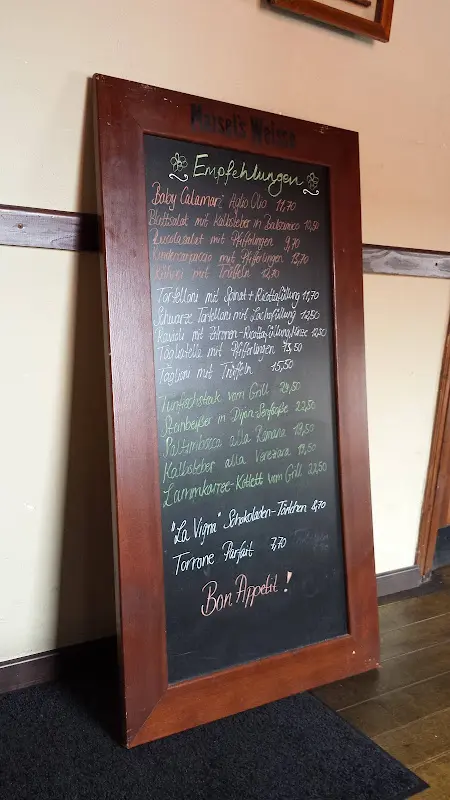 Maisel's Weisse
Empfehlungen
Baby Calamari Aglio Olio 11,70
Blattsalat mit Kalbsleber in Balsamico 10,50
Rucolasalat mit Pfifferlingen 9,70
Rindercarpaccio mit Pfifferlingen 13,70
mit Trüffeln 12,70
Tortelloni mit Spinat + Ricottafüllung 11,70
Schwarze Tortelloni mit Lachsfüllung 12,50
Ravioli mit Zitronen-Ricottafüllung, Minze 12,50
Tagliatelle mit Pfifferlingen 13,50
Taglioni mit Trüffeln 15,50
Tunfischsteak vom Grill 24,50
Steinbeißer in Dijon-Senfsoße 22,50
Saltimbocca alla Romana 19,50
Kalbsleber alla Veneziana 19,50
Lammkarree-Kotlett vom Grill 22,50
"La Vigna" Schokoladen-Törtchen 8,70
Torrone Parfait 7,70
Bon Appetit !